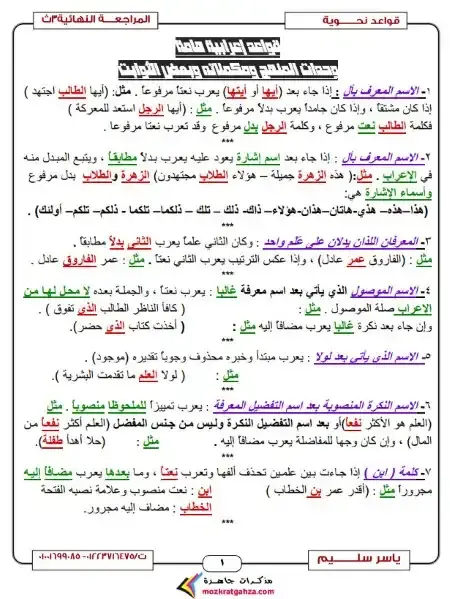 قواعد نحـــوية
المراجعــــة النهائية٣ث
قواعد إعرابية عامة
وحدات المنهج ومكملاته وبعض الثوابت
١- الاسم المعرف بأل : إذا جاء بعد (أيها أو أيتها) يعرب نعتاً مرفوعاً . مثل: (أيها الطالب اجتهد )
إذا كان مشتقاً ، وإذا كان جامداً يعرب بدلاً مرفوعاً . مثل : (أيها الرجل استعد للمعركة )
فكلمة الطالب نعت مرفوع ، وكلمة الرجل بدل مرفوع وقد تعرب نعتا مرفوعا .
***
٢- الاسم المعرف بأل : إذا جاء بعد اسم إشارة يعود عليه يعرب بدلاً مطابقاً ، ويتبع المبدل منه
في الاعراب . مثل:( هذه الزهرة جميلة – هؤلاء الطلاب مجتهدون) الزهرة والطلاب بدل مرفوع
وأسماء الإشارة هي:
(هذا-هذه- هذي-هاتان-هذان-هؤلاء- ذاك- ذلك – تلك – ذلكما- تلكما - ذلكم- تلكم- أولئك) .
٣- المعرفان اللذان يدلان على علم واحد : وكان الثاني علماً يعرب الثاني بدلاً مطابقاً .
مثل : (الفاروق عمر عادل) ، وإذا عكس الترتيب يعرب الثاني نعتاً . مثل : عمر الفاروق عادل .
***
٤- الاسم الموصول الذي يأتي بعد اسم معرفة غالبا : يعرب نعتاً ، والجملة بعده لا محل لها من
الاعراب صلة الموصول . مثل : ( كافأ الناظر الطالب الذي تفوق ) .
وإن جاء بعد نكرة غالبا يعرب مضافاً إليه مثل : ( أخذت كتاب الذي حضر).
***
٥- الاسم الذي يأتي بعد لولا : يعرب مبتدأ وخبره محذوف وجوباً تقديره (موجود) .
مثل : ( لولا العلم ما تقدمت البشرية ).
***
٦- الاسم النكرة المنصوبة بعد اسم التفضيل المعرفة : يعرب تمييزاً للملحوظا منصوباً . مثل
(العلم هو الأكثر نفعاً)أو بعد اسم التفضيل النكرة وليس من جنس المفضل (العلم أكثر نفعاً من
المال) ، وإن كان وجها للمفاضلة يعرب مضافاً إليه . مثل : (حلا أهدأ طفلة).
***
٧- كلمة ( ابن ) إذا جاءت بين علمين تحذف ألفها وتعرب نعتاً ، وما بعدها يعرب مضافاً إليه
مجروراً مثل : (أقدر عمر بن الخطاب ) ابن : نعت منصوب وعلامة نصبه الفتحة
الخطاب : مضاف إليه مجرور.
***
ياسر سليــم
١
ت/٠١٢٢٣٧١٦٤٧٥-٠١٠٠١٦٩٩٠٨٥
مذكرات جاهزة
mozkratgahza.com